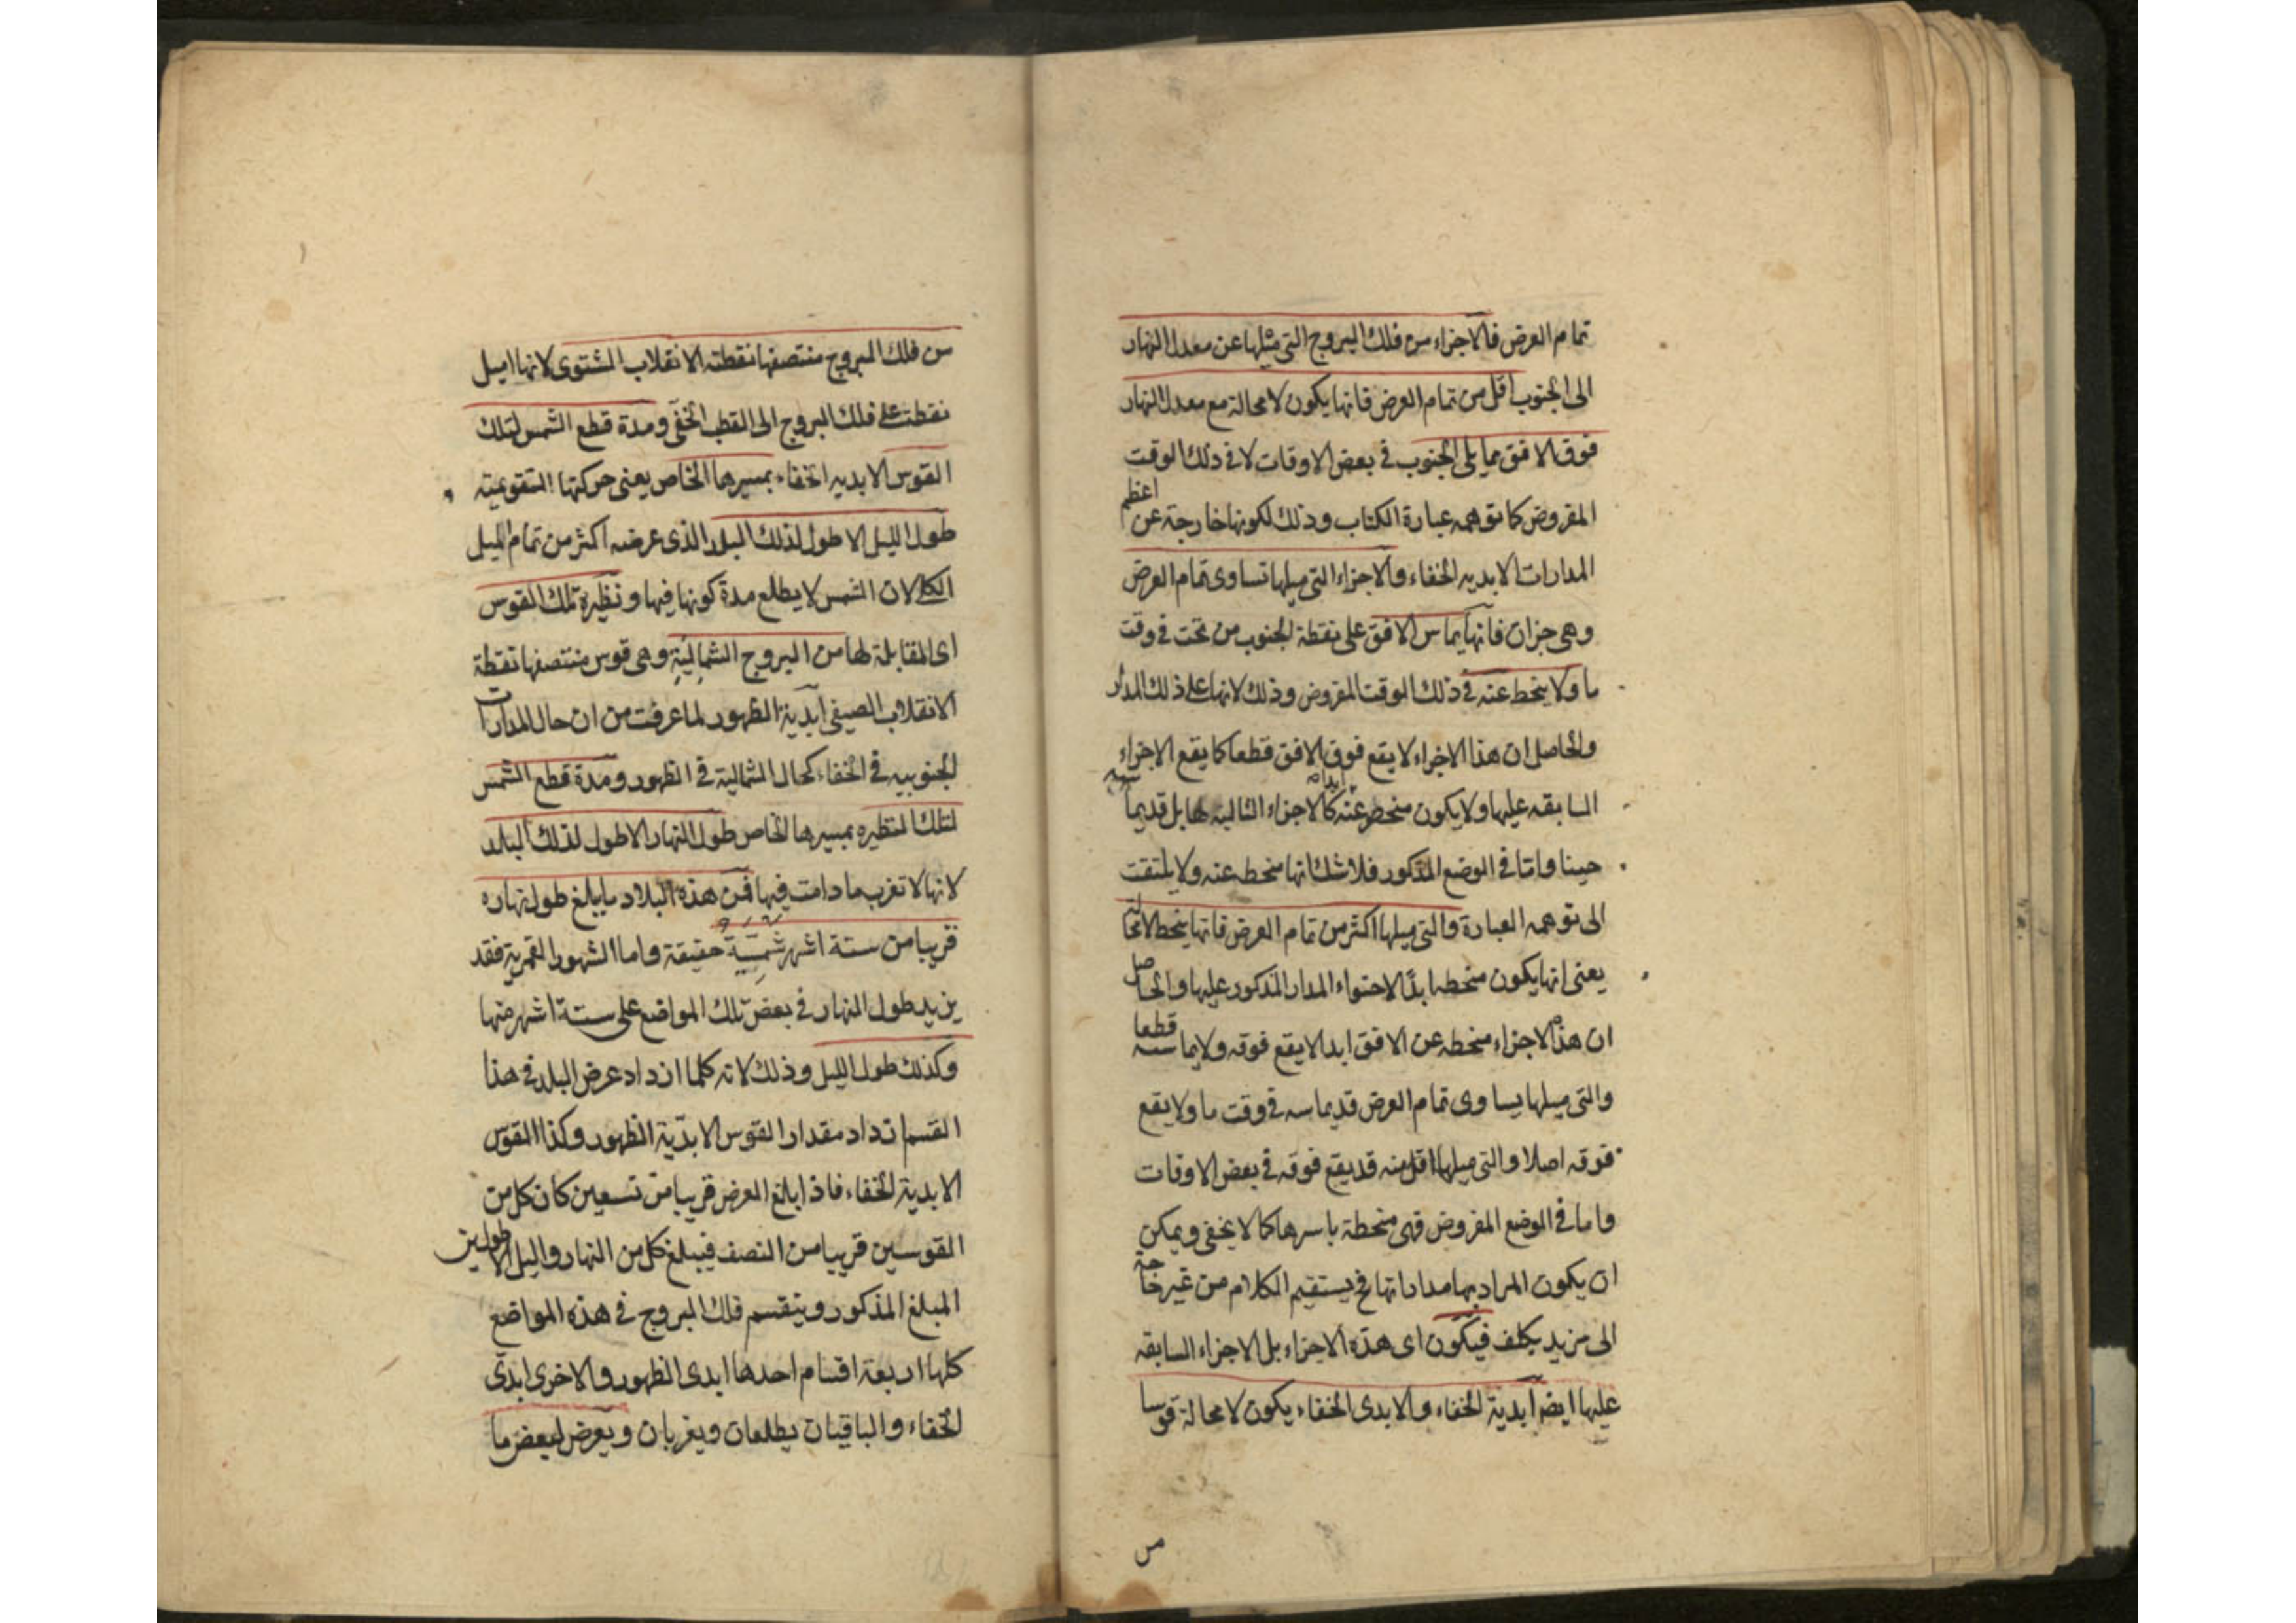 تمام العرض فالاجزاء من فلك البروج التي ميلها عن معدل النهار
الى الجنوب اقل من تمام العرض فانها يكون لا محالة مع معدل النهار
فوق الافق مما يلى الجنوب في بعض الاوقات لا في ذلك الوقت
المفروض كما توهمه عبارة الكتاب وذلك لكونها خارجة عن اعظم
المدارات الابديه الخفاء والاجزاء التي ميلها تساوى تمام العرض
وهى جزان فانها يماس الافق على نقطة الجنوب من تحت في وقت
ما ولا ينحط عنه في ذلك الوقت المفروض وذلك لانها على ذلك المدار
والحاصل ان هذا الاجزاء لا يقع فوق الافق قطعا كما يقع الاجزاء
السابقه عليها ولا يكون منحطه عنه ابدا كالاجزاء التاليه لها بل قد يماسه
حينا واما في الوضع المذكور فلا شك انها منحطه عنه ولا يلتفت
الى توهمه العبارة والتي ميلها اكثر من تمام العرض فانها ينحط
يعنى انها يكون منحطه ابدا لاحتواء المدار المذكور عليها والحاصل
ان هذه الاجزاء منحطه عن الافق ابدا لا يقع فوقه ولا يماسه قطعا
والتي ميلها يساوى تمام العرض قد يماسه في وقت ما ولا يقع
فوقه اصلا والتي ميلها اقل منه قد يقع فوقه في بعض الاوقات
واما في الوضع المفروض فهى منحطة باسرها كما لا يخفى ويمكن
ان يكون المراد بها مداراتها فح يستقيم الكلام من غير حاجة
الى مزيد تكلف فيكون اى هذه الاجزاء بل الاجزاء السابقه
عليها ايضا ابدية الخفاء والابدى الخفاء يكون لا محالة قوسا
من
من فلك البروج منتصفها نقطة الانقلاب الشتوى لانها اميل
نقطة على فلك البروج الى القطب الخفى ومدة قطع الشمس لتلك
القوس الابديه الخفاء بمسيرها الخاص يعنى حركتها التقويميته
طول الليل الاطول لذلك البلد الذى عرضه اكثر من تمام الميل
الكلى لان الشمس لا يطلع مدة كونها فيها ونظيره تلك القوس
اى المقابلة لها من البروج الشمالية وهى قوس منتصفها نقطة
الانقلاب الصيفى ابدية الظهور لما عرفت من ان حال المدارات
الجنوبيه في الخفاء كحال الشمالية في الظهور ومدة قطع الشمس
لتلك النظيره بمسيرها الخاص طول النهار الاطول لذلك البلد
لانها لا تغرب ما دامت فيها فمن هذه البلاد ما يبلغ طول نهاره
قريبا من ستة اشهر شمسية حقيقة واما الشهور القمرية فقد
يزيد طول النهار في بعض تلك المواضع على ستة اشهر منها
وكذلك طول الليل وذلك لانه كلما ازداد عرض البلد في هذا
القسم ازداد مقدار القوس الابدية الظهور وكذا القوس
الابدية الخفاء فاذا بلغ العرض قريبا من تسعين كان كل من
القوسين قريبا من النصف فيبلغ كل من النهار والليل الاطولين
المبلغ المذكور وينقسم فلك البروج في هذه المواضع
كلها اربعة اقسام احدها ابدى الظهور والاخرى ابدى
الخفاء والباقيان يطلعان ويغربان ويعرض لبعض ما